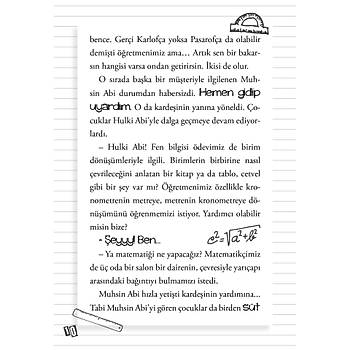 bence. Gerçi Karlofça yoksa Pasarofça da olabilir
demişti öğretmenimiz ama... Artık sen bir bakar-
sın hangisi varsa ondan getirirsin. İkisi de olur.
O sırada başka bir müşteriyle ilgilenen Muh-
sin Abi durumdan habersizdi. Hemen gidip
uyardım. O da kardeşinin yanına yöneldi. Ço-
cuklar Hulki Abi'yle dalga geçmeye devam ediyor-
lardı.
– Hulki Abi! Fen bilgisi ödevimiz de birim
dönüşümleriyle ilgili. Birimlerin birbirine nasıl
çevrileceğini anlatan bir kitap ya da tablo, cetvel
gibi bir şey var mı? Öğretmenimiz özellikle kro-
nometrenin metreye, metrenin kronometreye dö-
nüşümünü öğrenmemizi istiyor. Yardımcı olabilir
misin bize?
- Şeyyy! Ben...
c²=√a²+b²
– Ya matematiği ne yapacağız? Matematikçimiz
de üç oda bir salon bir dairenin, çevresiyle yarıçapı
arasındaki bağıntıyı bulmamızı istedi.
Muhsin Abi hızla yetişti kardeşinin yardımına...
Tabi Muhsin Abi'yi gören çocuklar da birden süt
10